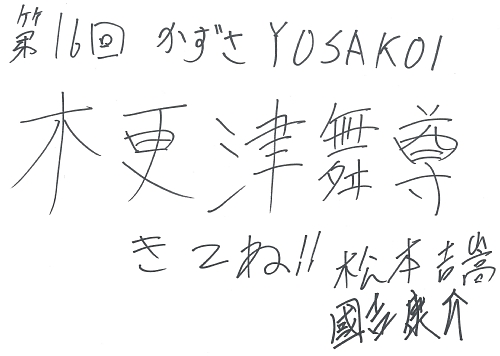 第16回 かずさ YOSAKOI
木更津舞尊
きてね!!
松本吉嵩
國多康介